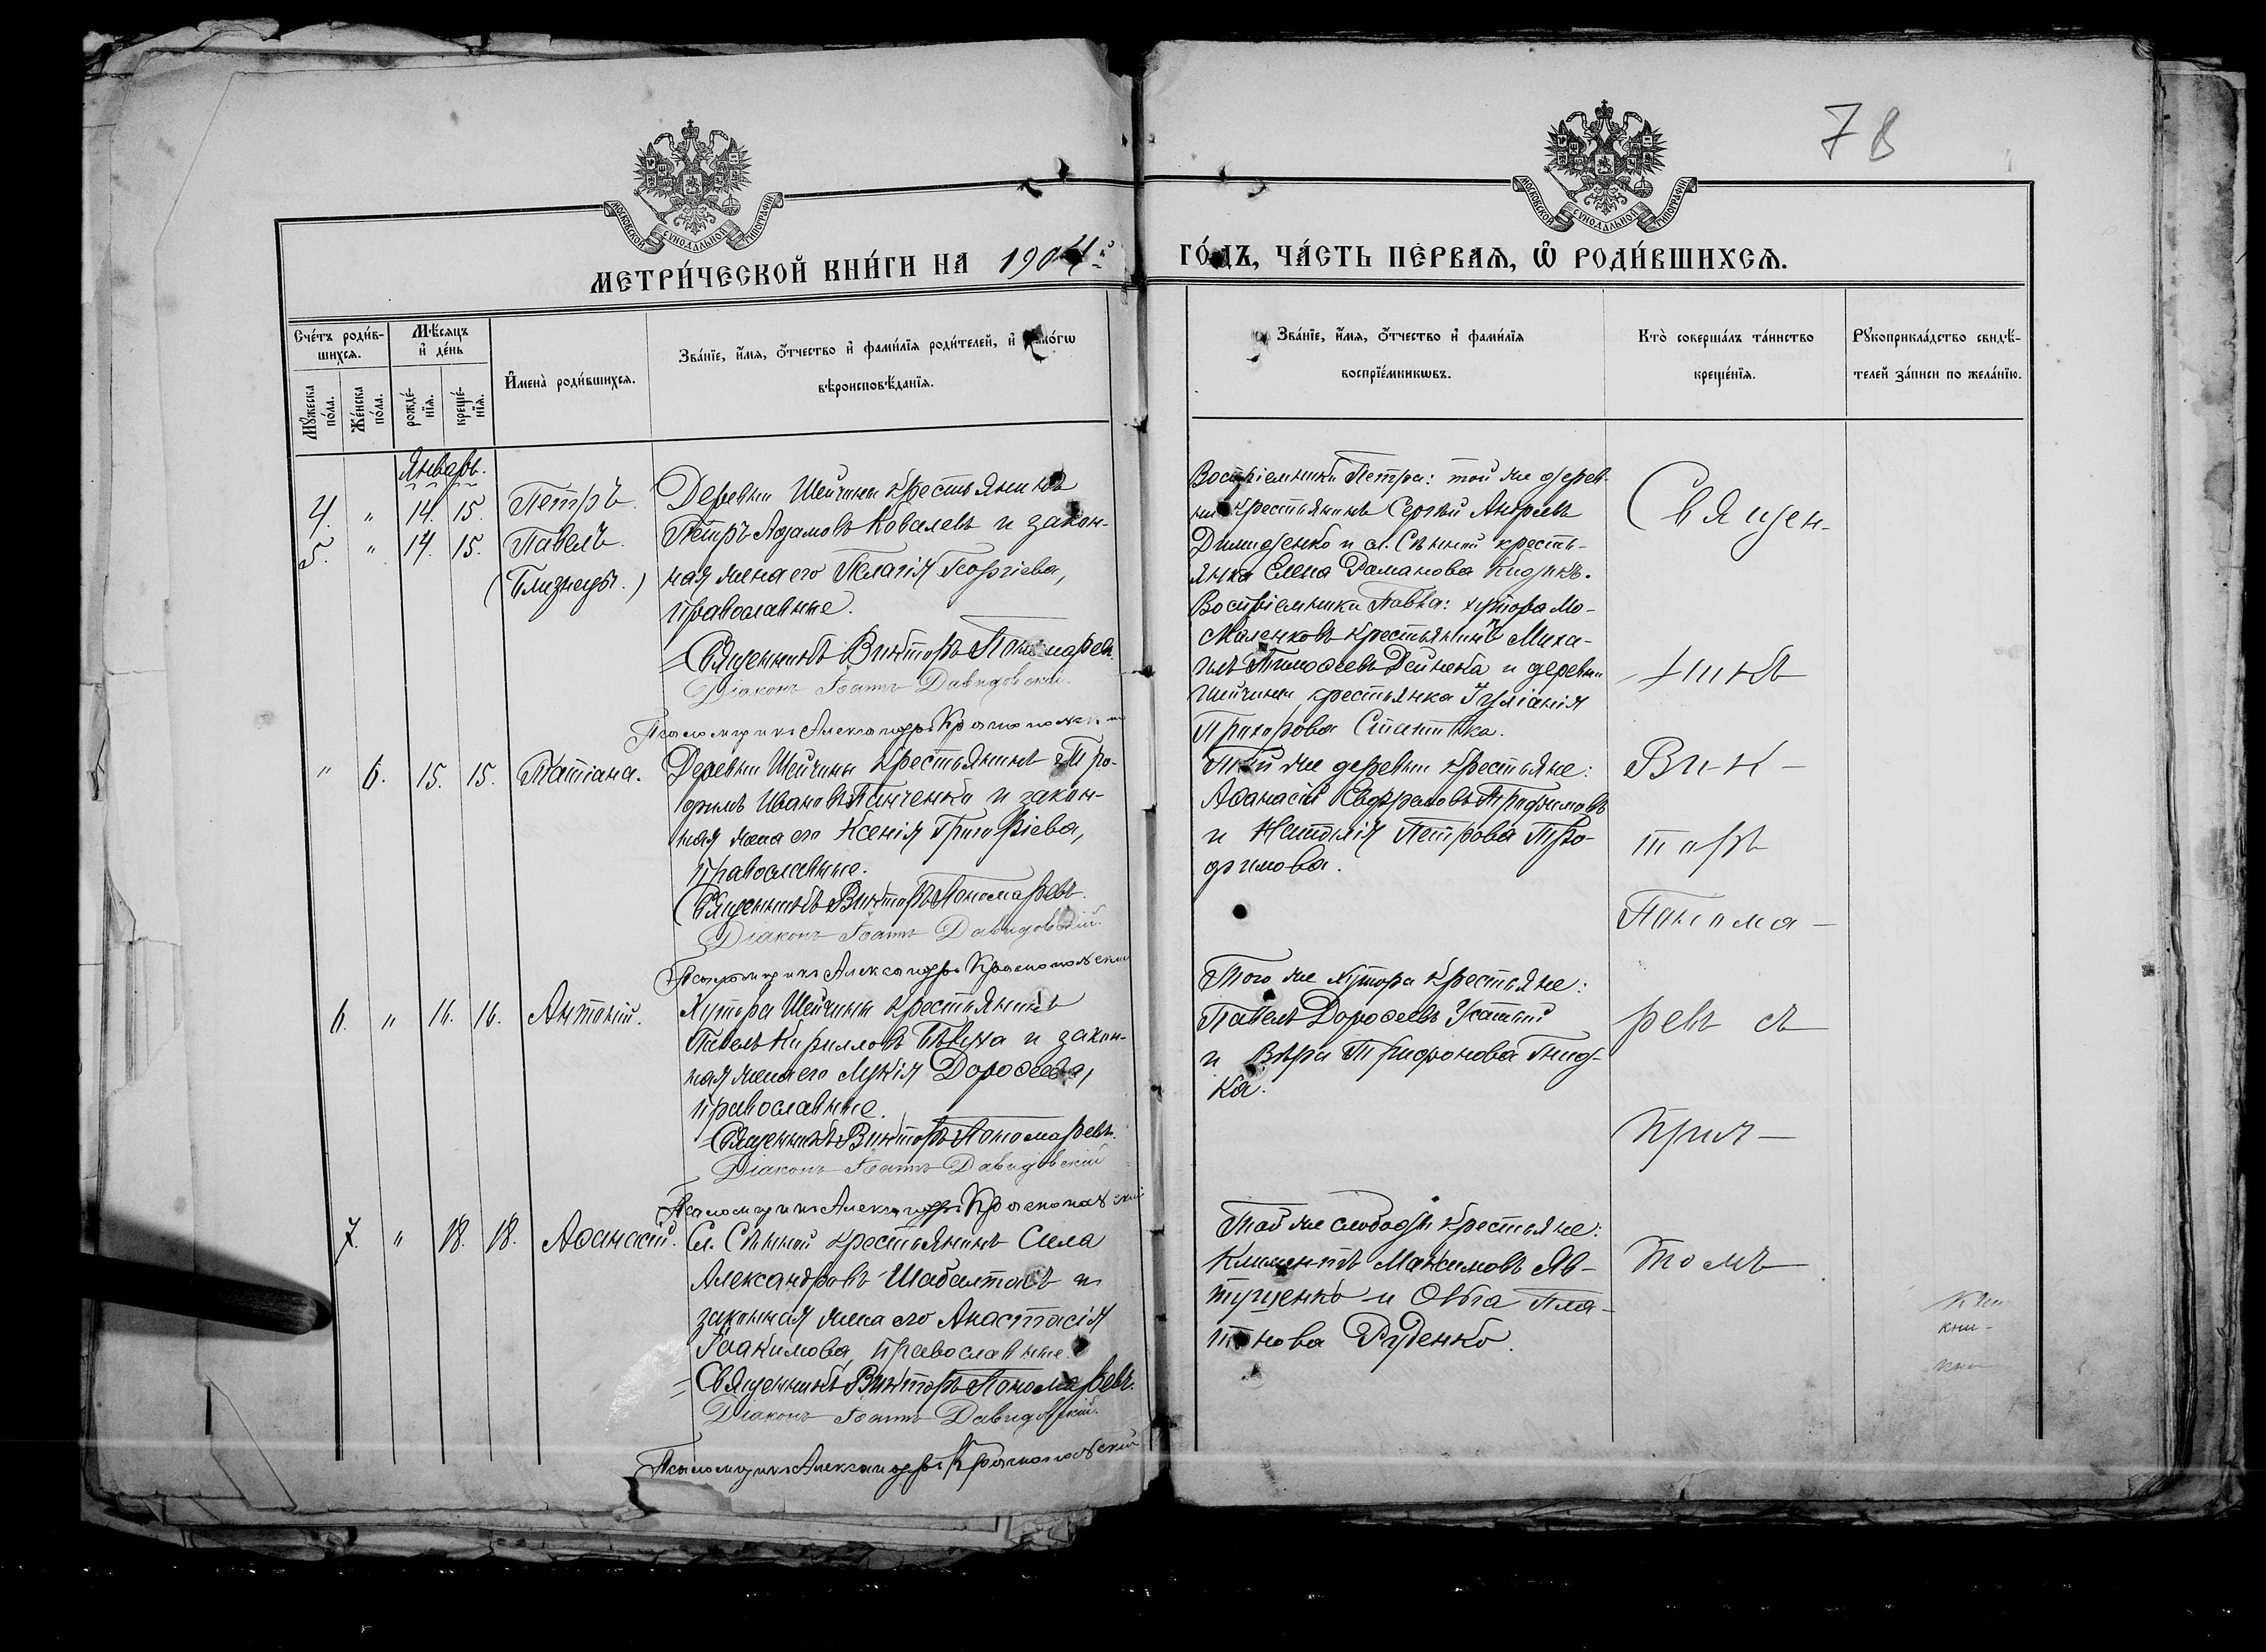 78
МОСКОВСКОЙ СѴНОДАЛЬНОЙ ТИПОГРАФІИ
МОСКОВСКОЙ СѴНОДАЛЬНОЙ ТИПОГРАФІИ
МЕТРИ́ЧЕСКОЙ КНИ́ГИ НА 1904й
ГО́ДЪ, ЧА́СТЬ ПЕ́РВАѦ, Ѡ҆ РОДИ́ВШИХСѦ.
Сче́тъ роди́в-
шихсѧ.
Мѣ́сѧцъ
и҆ де́нь
Мꙋ́жеска
по́ла.
Же́нска
по́ла.
рожде́-
нїѧ.
креще́-
нїѧ.
И҆мена̀ роди́вшихсѧ.
Зва́нїе, и҆́мѧ, ѻ҆́тчество и҆ фами́лїѧ роди́телей, и҆ како́гѡ
вѣроисповѣ́данїѧ.
Зва́нїе, и҆́мѧ, ѻ҆́тчество и҆ фами́лїѧ
воспрїе́мникѡвъ.
Кто̀ соверша́лъ та́инство
креще́нїѧ.
Рꙋкоприкла́дство свидѣ́-
телей за́писи по жела́нїю.
Январь.
4. " 14. 15. Петръ.
5. " 14. 15. Павелъ.
(Близнецы.)
Деревни Шейчины крестьянинъ
Петръ Адамовъ Ковалевъ и закон-
ная жена его Пелагія Георгіева,
православные.
Священникъ Викторъ Пономаревъ.
Діаконъ Іоаннъ Давидовскій.
Псаломщикъ Александръ Краснопольскій
Воспріемники Петра: той же дерев-
ни крестьянинъ Сергѣй Андреевъ
и сл. Сѣнной кресть-
янка Елена Романова
Воспріемники Павла: хутора Мо-
крестьянинъ Миха-
илъ Тимофеевъ Дейнека и деревни
Шейчины крестьянка Іуліанія
Прохорова
" 6. 15. 15. Татіана.
Деревни Шейчины крестьянинъ Тро-
фимъ Ивановъ Панченко и закон-
ная жена его Ксенія Григоріева,
православные.
Священникъ Викторъ Пономаревъ.
Діаконъ Іоаннъ Давидовскій.
Псаломщикъ Александръ Краснопольскій
Той же деревни крестьяне:
Аѳанасій Евфремовъ Трофимовъ
и Наталія Петрова Тро-
фимова.
6. " 16. 16. Антоній.
Хутора Шейчины крестьянинъ
Павелъ Кирилловъ и закон-
ная жена его Лукія Дороѳеева,
православные.
Священникъ Викторъ Пономаревъ.
Діаконъ Іоаннъ Давидовскій
Псаломщикъ Александръ Краснопольскій
Того же хутора крестьяне:
Павелъ Дороѳеевъ Усатый
и Вѣра Трифонова Гнид-
ка.
7. " 18. 18. Аѳанасій.
Сл. Сѣнной крестьянинъ Сила
Александровъ Шабалтасъ и
законная жена его Анастасія
Іоакимова, православные.
Священникъ Викторъ Пономаревъ.
Діаконъ Іоаннъ Давидовскій.
Псаломщикъ Александръ Краснопольскій
Той же слободы крестьяне:
Климентъ Максимовъ Яв-
тушенко и Ольга Пла-
тонова Руденко.
Священ-
никъ
Вик-
торъ
Понома-
ревъ съ
прич-
томъ